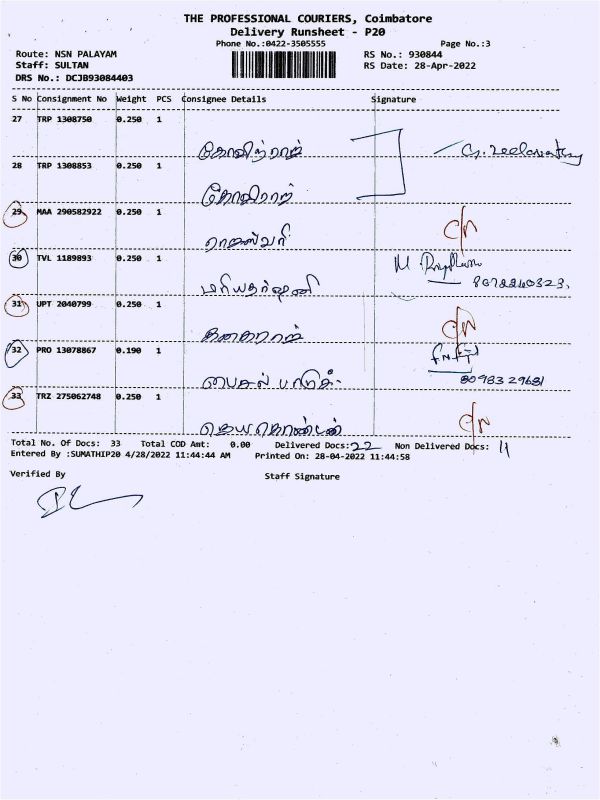 THE PROFESSIONAL COURIERS, Coimbatore
Delivery Runsheet - P20
Phone No.:0422-3505555 Page No.:3
Route: NSN PALAYAM RS No.: 930844
Staff: SULTAN RS Date: 28-Apr-2022
DRS No.: DCJB93084403
S No Consignment No Weight PCS Consignee Details Signature
27 TRP 1308750 0.250 1
28 TRP 1308853 0.250 1
29 MAA 290582922 0.250 1
C/N
30 TVL 1189893 0.250 1
மரியதர்ஷினி
31 UPT 2040799 0.250 1
கனகராஜ் C/N
32 PRO 13078867 0.190 1
33 TRZ 275062748 0.250 1
ஜெயகொண்டன் C/N
Total No. Of Docs: 33 Total COD Amt: 0.00 Delivered Docs: 22 Non Delivered Docs: 11
Entered By :SUMATHIP20 4/28/2022 11:44:44 AM Printed On: 28-04-2022 11:44:58
Verified By Staff Signature